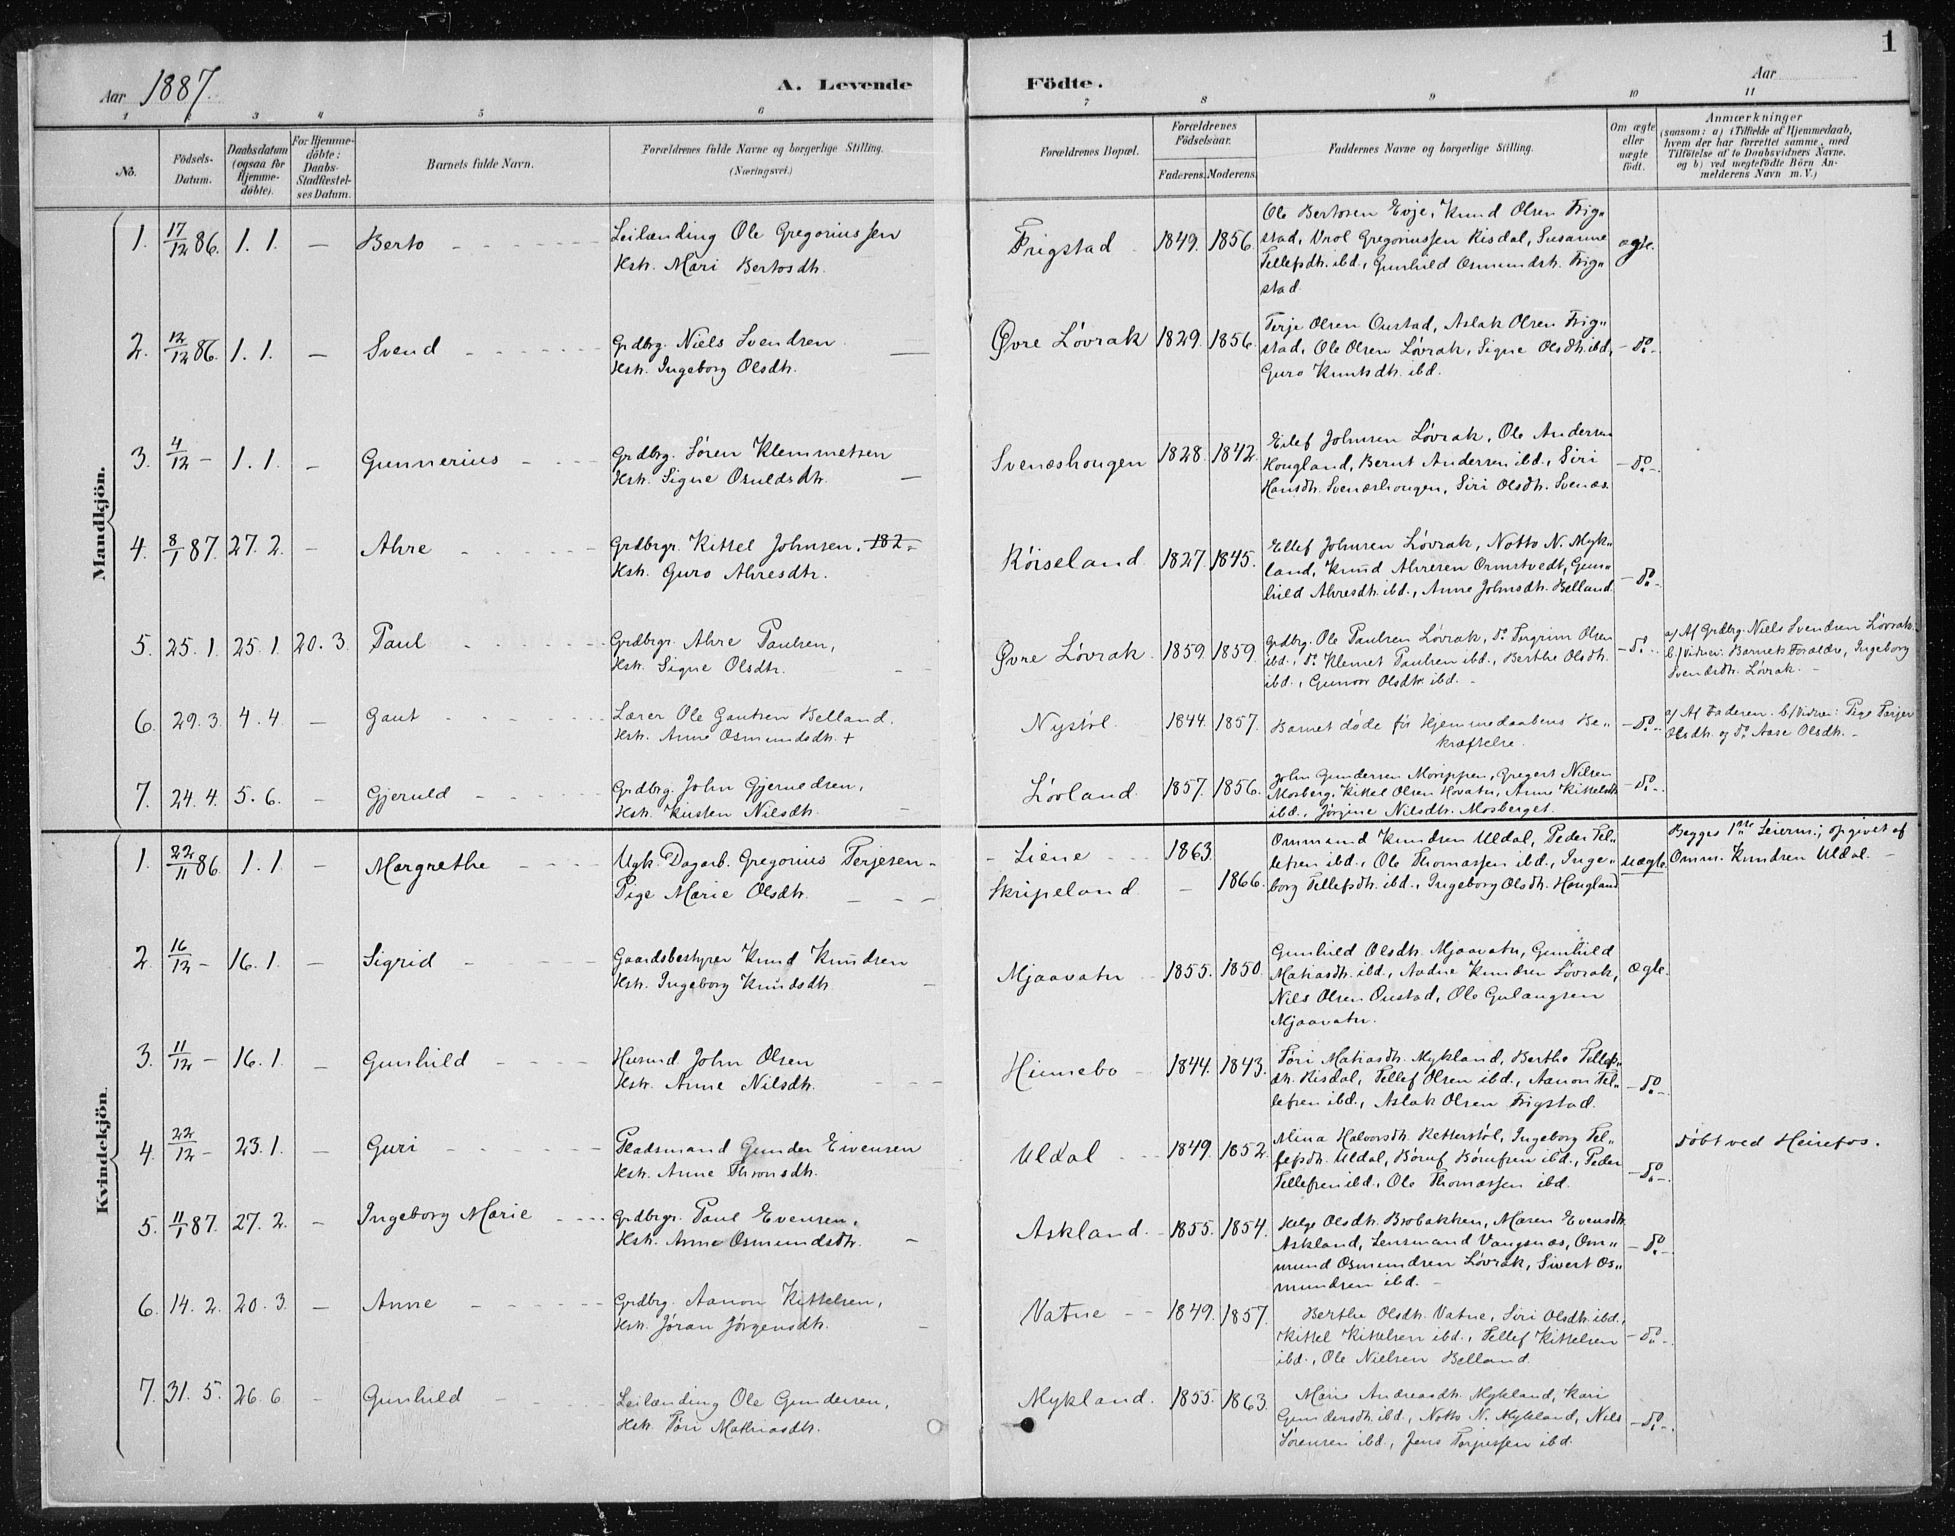 1
Aar 1887.
A. Levende Födte.
Aar
1 2 3 4 5 6 7 8 9 10 11
No.
Födsels-Datum.
Daabsdatum (ogsaa for Hjemmedöbte).
For Hjemmedöbte: Daabs-Stadfestelses Datum.
Barnets fulde Navn.
Forældrenes fulde Navne og borgerlige Stilling. (Næringsvei.)
Forældrenes Bopæl.
Forældrenes Födselsaar.
Faderens. Moderens.
Faddernes Navne og borgerlige Stilling.
Om ægte eller uægte födt.
Anmærkninger
(saasom: a) i Tilfælde af Hjemmedaab,
hvem der har forrettet samme, med
Tilföielse af to Daabsvidners Navne,
og b) ved uegtefödte Börn Anmelderens Navn m. V.)
Mandkjön.
1. 17/12 86. 1. 1. — Berto
Leilænding Ole Gregoriussen
Kstr. Mari Bertosdtr.
Frigstad 1849. 1856.
Ole Bertosen Evje, Knud Olsen Frig-
stad, Vrol Gregoriussen Risdal, Susanne
Tellefsdtr. ibd., Gunhild Osmundstr. Frig-
stad.
ægte.
2. 12/12 86. 1. 1. — Svend
Grdbrg. Niels Svendsen
Kstr. Ingeborg Olsdtr.
Øvre Løvrak 1829. 1856.
Terje Olsen Oustad, Aslak Olsen Frig-
stad, Ole Olsen Løvrak, Signe Olsdtr. ibd.,
Guro Knutsdtr. ibd.
- do -
3. 4/12 - 1. 1. — Gunnerius
Grdbrg. Søren Klemmetsen
Kstr. Signe Osuldsdtr.
Svenæshougen 1828. 1842.
Eilef Johnsen Løvrak, Ole Andersen
Hougland, Bernt Andersen ibd., Siri
Hansdtr. Svenæshougen, Siri Olsdtr. Svenæs.
- do -
4. 8/1 87. 27. 2. — Ahre
Grdbrgr. Kittel Johnsen, 182
Kstr. Guro Ahresdtr.
Røiseland 1827. 1845.
Ellef Johnsen Løvrak, Notto N. Myk-
land, Knud Ahresen Ormstvedt, Gun-
hild Ahresdtr. ibd., Anne Johnsdtr. Belland.
- do -
5. 25. 1. 25. 1. 20. 3. Paul
Grdbrgr. Ahre Paulsen,
Kstr. Signe Olsdtr.
Øvre Løvrak 1859. 1859.
Grdbrg. Ole Paulsen Løvrak, do Torgrim Olsen
ibd., do Klemet Paulsen ibd., Berthe Olsdtr.
ibd., Gunvor Olsdtr. ibd.
- do -
a/ Af Grdbrg. Niels Svendsen Løvrak.
b/ Vidner: Barnets Forældre, Ingeborg
Svendsdtr. Løvrak.
6. 29. 3. 4. 4. — Gaut
Lærer Ole Gautsen Belland.
Kstr. Anne Osmundsdtr. +
Nystøl 1844. 1857.
Barnet døde før Hjemmedaabens Be-
kræftelse.
- do -
a/ Af Faderen. b/ Vidner: Pige Torjer
Olsdtr. og do Aase Olsdtr.
7. 24. 4. 5. 6. — Gjeruld
Grdbrg. John Gjeruldsen,
Kstr. Kirsten Nilsdtr.
Løvland. 1857. 1856.
John Gundersen Morippen, Gregert Nilsen
Mosberg, Kittel Olsen Hovatn, Anne Kittelsdtr.
ibd., Jørgine Nilsdtr. Mosberget.
- do -
Kvindekjön.
1. 22/11 86. 1. 1. — Margrethe
Ugk. Dagarb. Gregorius Terjesen
Pige Marie Olsdtr.
Liene 1863.
Skripeland. — 1866.
Ommund Knudsen Uldal, Peder Tel-
lefsen ibd., Ole Thomassen ibd., Inge-
borg Tellefsdtr. ibd., Ingeborg Olsdtr. Hougland
uægte.
Begges 1ste Leierm.; opgivet af
Omm. Knudsen Uldal.
2. 16/12 - 16. 1. — Sigrid
Gaardsbestyrer Knud Knudsen
Kstr. Ingeborg Knudsdtr.
Mjaavatn 1855. 1850.
Gunhild Olsdtr. Mjaavatn, Gunhild
Matiasdtr. ibd., Aadne Knudsen Løvrak,
Nils Olsen Oustad, Ole Gulaugsen
Mjaavatn.
ægte.
3. 11/12 - 16. 1. — Gunhild
Husmd. John Olsen
Kstr. Anne Nilsdtr.
Hinnebo 1844. 1843.
Tøri Matiasdtr. Mykland, Berthe Tellefs-
dtr. Risdal, Tellef Olsen ibd., Aanon Tel-
lefsen ibd., Aslak Olsen Frigstad.
- do -
4. 22/12 - 23. 1. — Guri
Pladsmand Gunder Eivensen
Kstr. Anne Thronsdtr.
Uldal 1849. 1852.
Mina Halvorsdtr. Ketterstøl, Ingeborg Tel-
lefsdtr. Uldal, Børuf Børufsen ibd., Peder
Tellefsen ibd., Ole Thomassen ibd.
- do -
døbt ved Heirefos.
5. 11/1 87. 27. 2. — Ingeborg Marie
Grdbrgr. Paul Evensen,
Kstr. Anne Osmundsdtr.
Askland. 1855. 1854.
Helge Olsdtr. Brobakken, Maren Evensdtr.
Askland, Lensmand Vangsnes, Om-
mund Osmundsen Løvrak, Sivert Os-
mundsen ibd.
- do -
6. 14. 2. 20. 3. — Anne
Grdbrg. Aanon Kittelsen,
Kstr. Jøran Jørgensdtr.
Vatne 1849. 1857.
Berthe Olsdtr. Vatne, Siri Olsdtr. ibd.,
Kittel Kittelsen ibd., Tellef Kittelsen
ibd., Ole Nielsen Belland.
- do -
7. 31. 5. 26. 6. — Gunhild
Leilænding Ole Gundersen,
Kstr. Tøri Mathiasdtr.
Mykland. 1855. 1863.
Marie Andreasdtr. Mykland, Kari
Gundersdtr. ibd., Notto N. Mykland, Nils
Sørensen ibd., Jens Torjussen ibd.
- do -